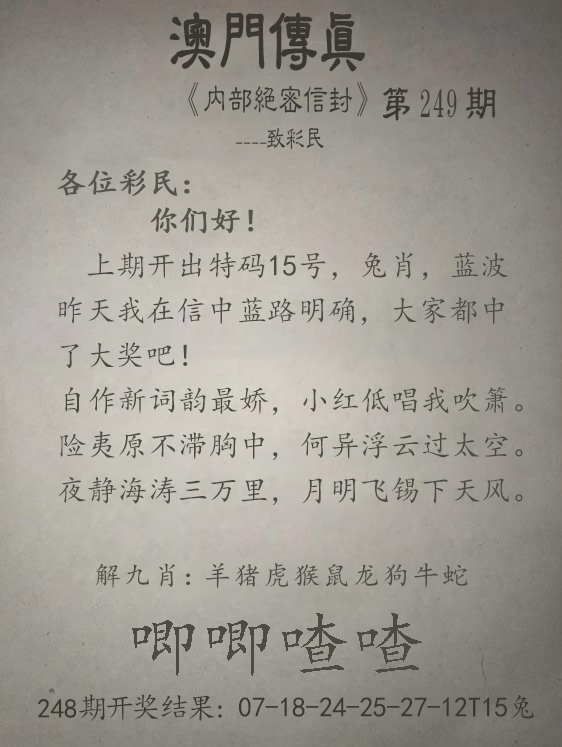 澳門傳真
《内部絕密信封》第249期
----致彩民
各位彩民：
你们好！
上期开出特码15号，兔肖，蓝波
昨天我在信中蓝路明确，大家都中
了大奖吧！
自作新词韵最娇，小红低唱我吹箫。
险夷原不滞胸中，何异浮云过太空。
夜静海涛三万里，月明飞锡下天风。
解九肖：羊猪虎猴鼠龙狗牛蛇
唧唧喳喳
248期开奖结果：07-18-24-25-27-12T15兔